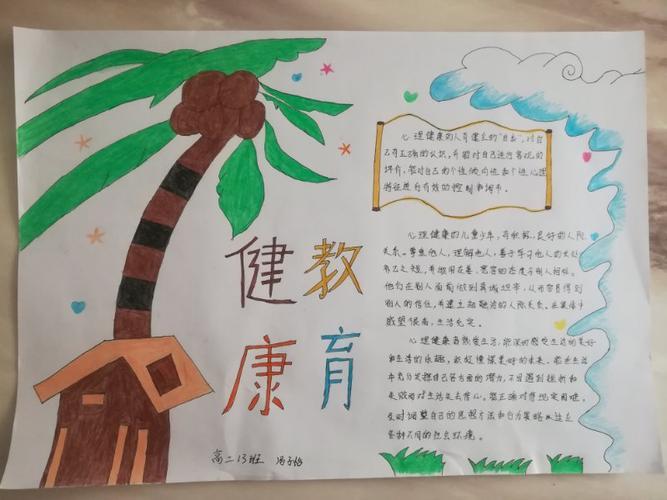 健康
教育
心理健康的人有建立的"自我",对自
己有正确的认识,并能对自己进行客观的
评价,能对自己的个性倾向性和个性心理
特征进行有效的控制和调节。
心理健康的儿童少年,有和谐、良好的人际
关系。尊重他人,理解他人,善于学习他人的长处
补己之短,并能用友善、宽容的态度与别人相处。
他们在别人面前能做到真诚坦率,从而容易得到
别人的信任,并建立起融洽的人际关系。在集体中
威望很高,生活充实。
心理健康者热爱生活,能深切感受生活的美好
和生活的乐趣,积极憧憬美好的未来。能在生活
中充分发挥自己各方面的潜力,不因遇到挫折和
失败而对生活失去信心。能正确对待现实困难,
及时调整自己的思想方法和行为策略以适应
各种不同的社会环境。
高二13班